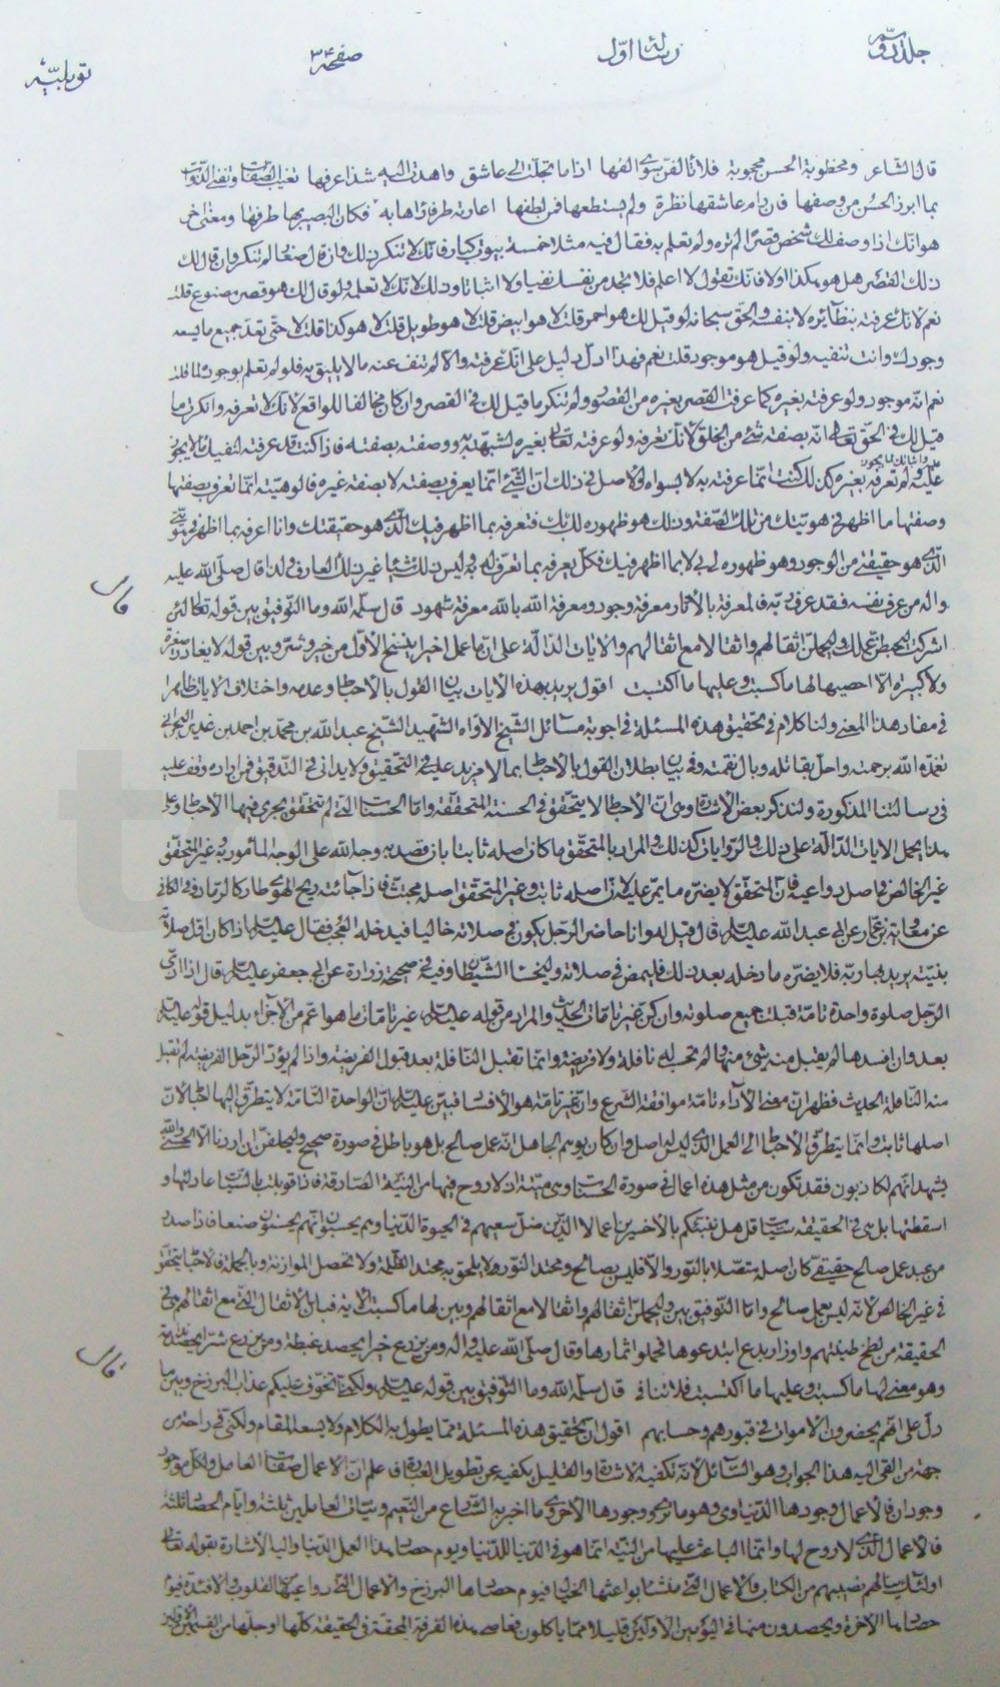 جلد دوم رسالة اول صفحه ۳۴ توبلیه
قال الشاعر ومخطوبة الحسن محجوبة فلا تألفن سوى الفها اذا ما تجلت الى عاشق واهدت اليه شذا عرفها تغيب الصفات وتفنى الذوات
بما ابرز الحسن من وصفها فان رام عاشقها نظرة ولم يستطعها فمن لطفها اعارته طرفا راها به فكان البصير بها طرفها ومعنى اخر
هو انك اذا وصف لك شخص قصرا لم تره ولم تعلم به فقال فيه مثلا خمسة بيوت كبار فانك لا تنكر ذلك وان قل صغار لم تنكر وان قال لك
ذلك القصر هل هو هكذا اولا فانك تقول لا اعلم فلا تجد من نفسك نفيا ولا اثباتا وذلك لانك لا تعلمه ولو قال لك هو قصر مصنوع قلت
نعم لانك عرفته بنظائره لا بنفسه والحق سبحانه لو قيل لك هو احمر قلت لا هو ابيض قلت لا هو طويل قلت لا هو كذا قلت لا حتى تعد جميع ما يسعه
وجودك وانت تنفيه ولو قيل هو موجود قلت نعم فهذا ادل دليل على انك عرفته والا لم تنف عنه ما لا يليق به فلو لم تعلم بوجوده لما قلت
نعم انه موجود ولو عرفته بغيره كما عرفت القصر بغيره من القصور لم تنكر ما قيل لك في القصر وان كان مخالفا للواقع لانك لا تعرفه وانكرت ما
قيل لك في الحق تعالى انه بصفته شئ من الخلق لانك تعرفه ولو عرفته تعالى بغيره لشبهته به ووصفته بصفته فاذا كنت قد عرفته لنفيك ما لا يجوز
عليه ولم تعرفه بغيره كذلك كنت انما عرفته به لا بسواه والاصل في ذلك ان الشئ انما يعرف بصفته لا بصفة غيره فالوهيته انما تعرف بصفتها
وصفتها ما اظهر في هويتك من تلك الصفة وذلك هو ظهوره لك بك فتعرفه بما اظهر فيك الذي هو حقيقتك وانا اعرفه بما اظهر في هويتي
الذي هو حقيقتي من الوجود وهو ظهوره لي بي لا بما اظهر فيك فكل يعرفه بما تعرف له به وليس ذلك شيئا غير ذلك العارف ولذا قال صلى الله عليه
واله من عرف نفسه فقد عرف ربه فالمعرفة بالاثار معرفة وجود ومعرفة الله بالله معرفة شهود قال سلمه الله وما التوفيق بين قوله تعالى لئن
اشركت ليحبطن عملك وليحملن اثقالهم واثقالا مع اثقالهم والايات الدالة على ان ما عمل اخيرا ينسخ الاول من خير وشر وبين قوله لا يغادر صغيرة
ولا كبيرة الا احصيها لها ما كسبت وعليها ما اكتسبت اقول يريد بهذه الايات بيان القول بالاحباط وعدمه واختلاف الايات ظاهرا
في مفاد هذا المعنى ولنا كلام في تحقيق هذه المسئلة في اجوبة مسائل الشيخ الاواه الشهيد الشيخ عبد الله بن محمد بن احمد بن غدير البحراني
تغمده الله برحمته واحل بقاتله وبال نقمته وفيه بيان بطلان القول بالاحباط بما لا مزيد عليه في التحقيق ولا يدانى في التدقيق فمن اراده وقف عليه
في رسالتنا المذكورة ولنذكر بعض الاشارة وهي ان الاحباط لا يتحقق في الحسنة المتحققة واما الحسنات التي لم تتحقق يجرى فيها الاحباط وعلى
هذا يحمل الايات الدالة على ذلك والروايات كذلك والمراد بالمتحقق ما كان اصله ثابتا بان قصد به وجه الله على الوجه المأمور به وغير المتحقق
غير الخالص في اصل دواعيه فان المتحقق لا يضره ما يمر عليه لان اصله ثابت وغير المتحقق اصله مجتث فاذا جائته ريح الهوى طار كالرماد ففي الكافي
عن معوية بن عمار عن ابي عبد الله عليه السلام قال قيل له وانا حاضر الرجل يكون في صلاته خاليا فيدخله العجب فقال عليه السلام اذا كان اول صلاته
بنية يريد بها ربه فلا يضره ما دخله بعد ذلك فليمض في صلاته وليخسأ الشيطان وفيه في صحيحة زرارة عن ابي جعفر عليه السلام قال اذا ادى
الرجل صلوة واحدة تامة قبلت جميع صلوته وان كن غير تامات الحديث والمراد من قوله عليه السلام غير تامات ما هو اعم من الاجزاء بدليل قوله عليه السلام
بعد وان افسدها لم يقبل منه شئ منها ولم تحسب له نافلة ولا فريضة وانما تقبل النافلة بعد قبول الفريضة واذا لم يؤد الرجل الفريضة لم تقبل
منه النافلة الحديث فظهر ان معنى الاداء تامة موافقة الشرع وان غير تامة هو الافساد فبين عليه السلام بان الواحدة التامة لا يتطرق اليها احباط لان
اصلها ثابت وانما يتطرق الاحباط الى العمل الذي ليس له اصل وان كان يوهم الجاهل انه عمل صالح بل هو باطل في صورة صحيح وليحلفن ان اردنا الا الحسنى والله
يشهد انهم لكاذبون فقد تكون من مثل هذه اعمال في صورة الحسنات وهي ميتة اذ لا روح فيها من النية الصادقة فاذا قوبلت بالسيئات عادلتها و
اسقطتها بل هي في الحقيقة سيئات قل هل ننبئكم بالاخسرين اعمالا الذين ضل سعيهم في الحيوة الدنيا وهم يحسبون انهم يحسنون صنعا فاذا صدر
من عبد عمل صالح حقيقي كان اصله متصلا بالنور والا فليس بصالح ومحتد النور لا يلحق به محتد الظلمة ولا تحصل الموازنة وبالجملة فالاحباط يتحقق
في غير الخالص لانه ليس بعمل صالح واما التوفيق بين وليحملن اثقالهم واثقالا مع اثقالهم وبين لها ما كسبت الاية فبان الاثقال التي مع اثقالهم هي في
الحقيقة من لطخ طينتهم واوزار بدع ابتدعوها فحملوا اثمارها وقال صلى الله عليه واله ومن يزرع خيرا يحصد غبطة ومن يزرع شرا يحصد ندامة
وهو معنى لها ما كسبت وعليها ما اكتسبت فلا تنافي قال سلمه الله وما التوفيق بين قوله عليه السلام ولكني اتخوف عليكم عذاب البرزخ وبين ما
دل على انهم يحضرون الاموات في قبورهم وحسابهم اقول ان تحقيق هذه المسئلة مما يطول به الكلام ولا يسعه المقام ولكني في راحة من
جهة من القى اليه هذا الجواب وهو السائل لانه تكفيه الاشارة والقليل يكفيه عن تطويل العبارة فاعلم ان الاعمال صفات العامل ولكل موجود
وجودان فالاعمال وجودها الدنياوى وهو ما ترى ووجودها الاخروى ما اخبر به الشارع من النعيم ونيات العاملين ثلثة وايام الحصاد ثلثة
فالاعمال الذي لا روح لها وانما الباعث عليها من النية انما هو في الدنيا للدنيا ويوم حصاد هذا العمل الدنيا واليه الاشارة بقوله تعالى
اولئك ينالهم نصيبهم من الكتاب والاعمال التي منشأ بواعثها الخيال فيوم حصادها البرزخ والاعمال التي دواعيها القلوب والافئدة فيوم
حصادها الاخرة ويحصدون منها في اليومين الاولين قليلا مما ياكلون فمعاصي هذه الفرقة المحقة في الحقيقة كلها او جلها من القسمين الاولين
قال
قال